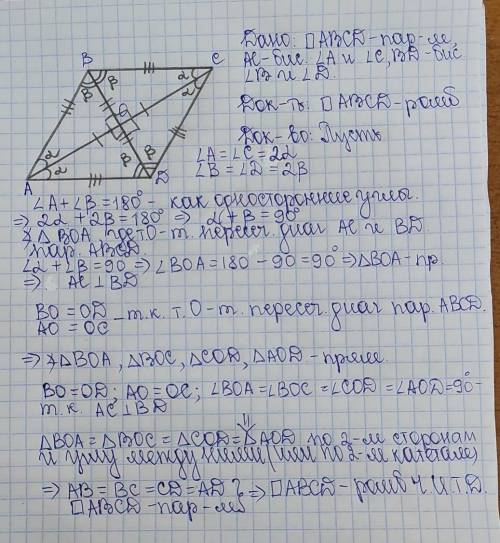 B
C
A
D
O
α
α
α
α
β
β
β
β
Дано: □ABCD-пар-м,
AC-бис. ∠A и ∠C, BD-бис
∠B и ∠D.
Док-ть: □ABCD-ромб
Док-во: Пусть
∠A=∠C=2α
∠B=∠D=2β
∠A+∠B=180° - как односторонние углы.
⇒ 2α+2β=180° ⇒ α+β=90°
△BOA, где т.O-т. пересеч. диаг AC и BD
пар. ABCD.
∠α+∠β=90 ⇒ ∠BOA=180-90=90° ⇒ △BOA-пр.
⇒ AC⊥BD
BO=OD - т.к. т.O-т. пересеч. диаг пар. ABCD.
AO=OC
⇒ △BOA, △BOC, △COD, △AOD-прям.
BO=OD; AO=OC; ∠BOA=∠BOC=∠COD=∠AOD=90°-
т.к. AC⊥BD
⇓
△BOA=△BOC=△COD=△AOD по 2-м сторонам
и углу между ними (или по 2-м катетам)
⇒ AB=BC=CD=AD } ⇒ □ABCD-ромб Ч.И.Т.Д.
□ABCD-пар-м